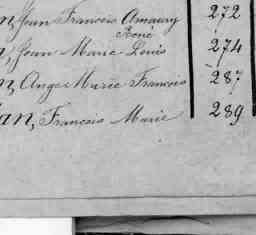 n, Jean Francois Amaury 272
René
n, Jean Marie Louis 274
n, Ange Marie Francois 287
an, Francois Marie 289